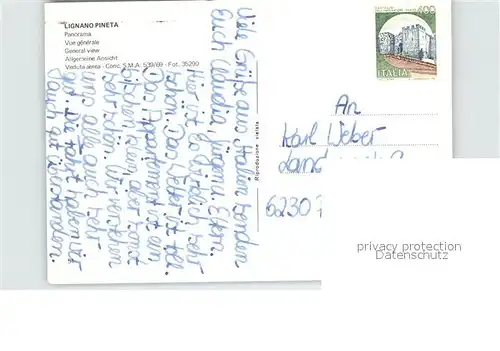 LIGNANO PINETA
Panorama
Vue générale
General view
Allgemeine Ansicht
Veduta aerea - Conc. S.M.A. 539/69 - Fot. 35290
Riproduzione vietata
400
ITALIA
Viele Grüße aus Italien senden
Euch Claudia, Jürgen u. Eltern.
Hier ist es wirklich sehr
schön. Das Wetter ist toll.
Das Appartment ist ein
bischen klein, aber sonst
sehr schön. Wir verstehen
uns alle auch sehr
gut. Die Fahrt haben wir
auch gut überstanden.
An
Karl Weber
6230
privacy protection
Datenschutz